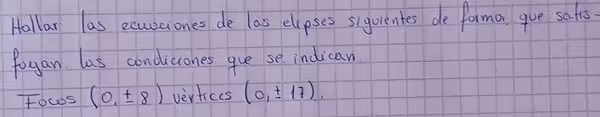 Hallar las ecuaciones de las elipses siguientes de forma que satis-
fagan las condiciones que se indican
Focos (0, ± 8) vèrtices (0, ± 17).